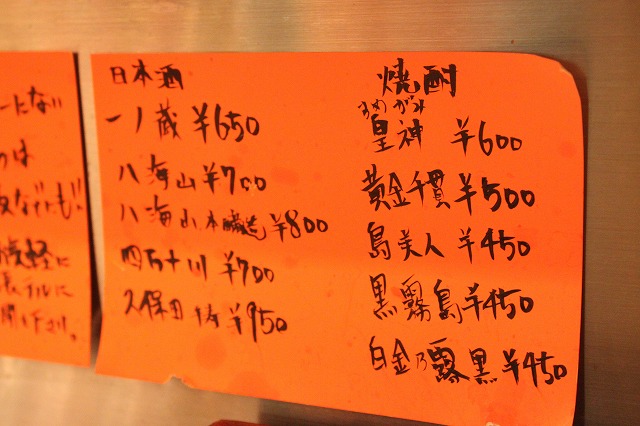 ーにない
のは
なんでも!
気軽に
開け下さい。
日本酒
一ノ蔵 ¥650
八海山 ¥700
八海山 本醸造 ¥800
四万十川 ¥700
久保田 ¥950
焼酎
すめがみ
皇神 ¥600
黄金千貫 ¥500
島美人 ¥450
黒霧島 ¥450
白金乃露黒 ¥450